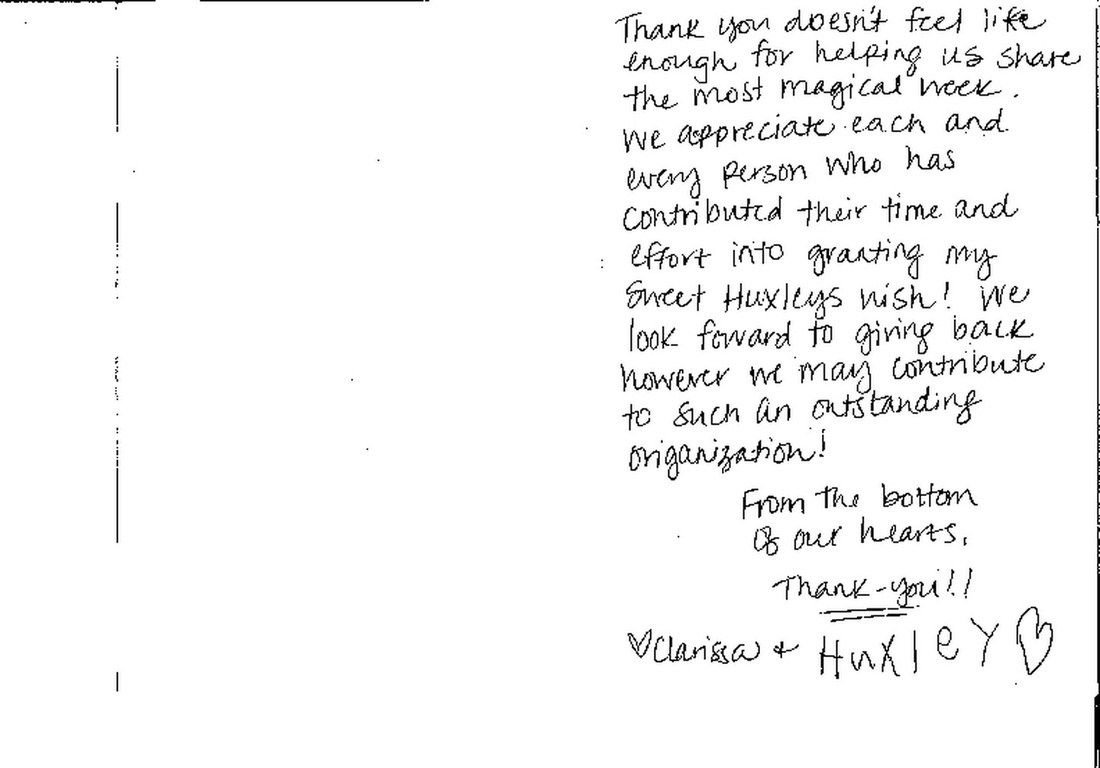 Thank you doesn't feel like
enough for helping us share
the most magical week.
We appreciate each and
every person who has
contributed their time and
effort into granting my
sweet Huxleys wish! We
look forward to giving back
however we may contribute
to such an outstanding
organization!
From the bottom
of our hearts,
Thank-you!!
♡Clarissa + HuxleY ♡